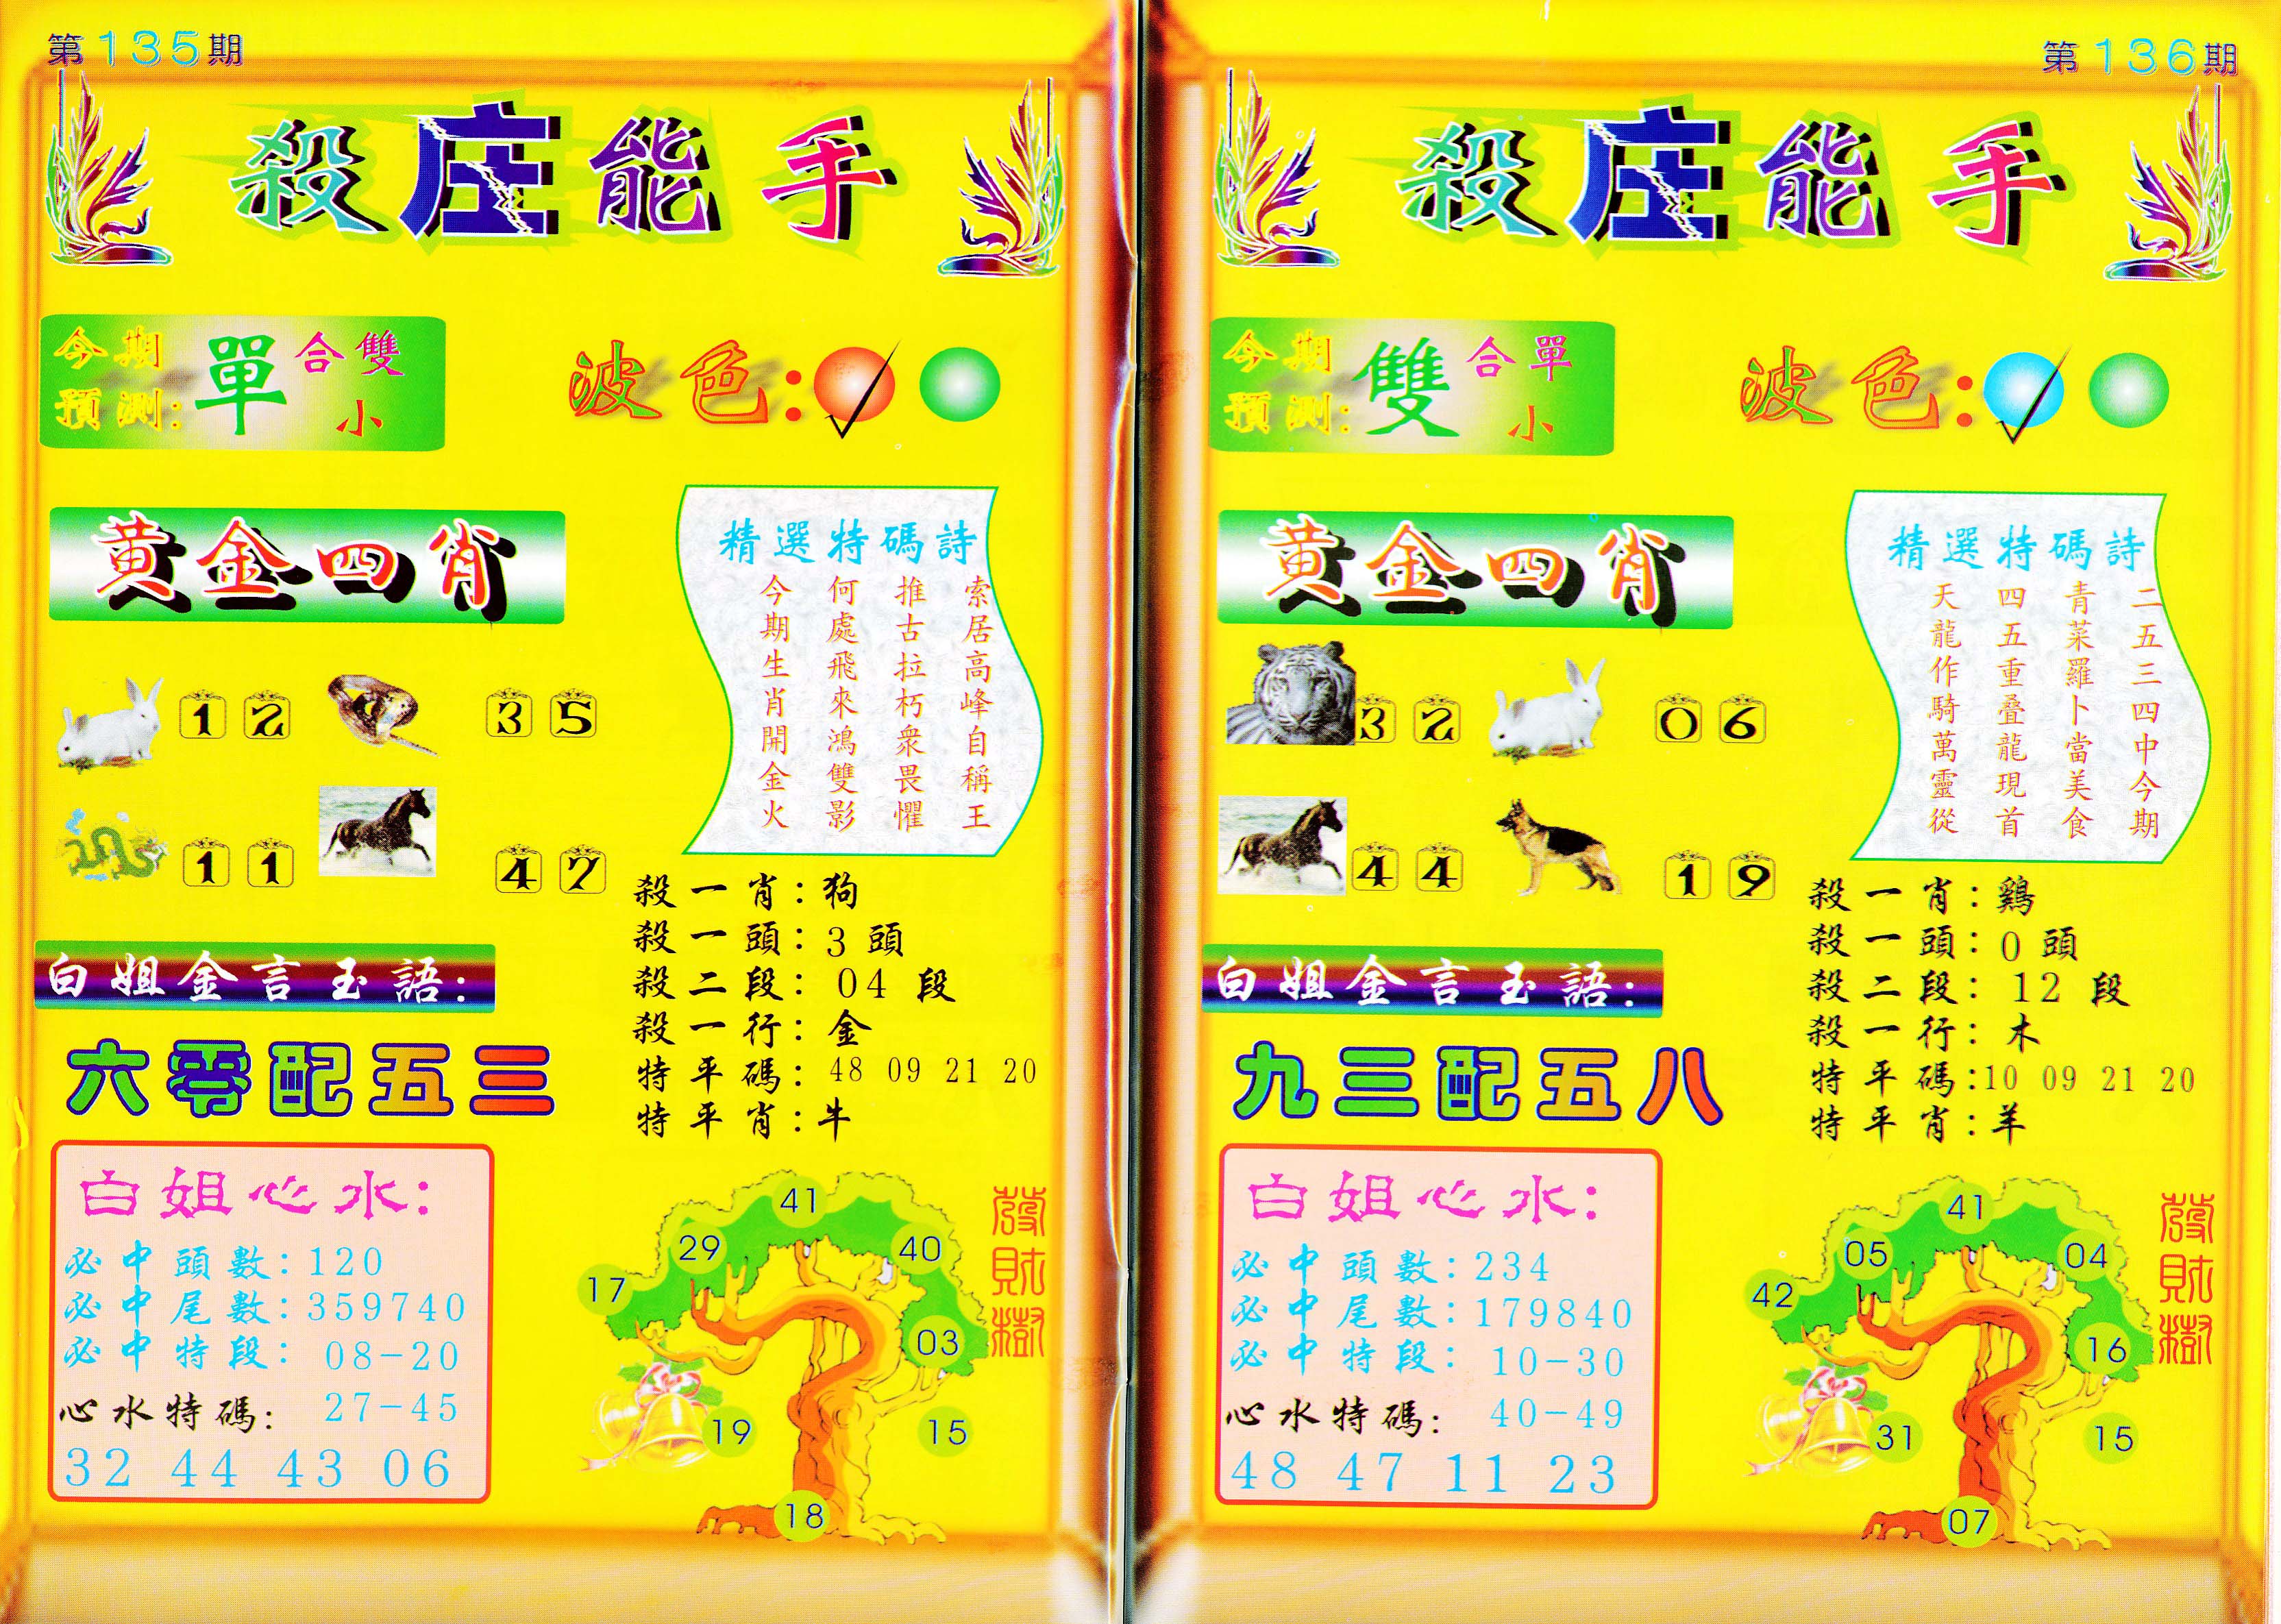 第135期
殺庄能手
今期預測:
單
合雙
小
波色:
黄金四肖
12
35
11
47
精選特碼詩
今期生肖開金火
何處飛來鴻雙影
推古拉朽衆畏懼
索居高峰自稱王
殺一肖:狗
殺一頭:3頭
殺二段:04段
殺一行:金
特平碼:48 09 21 20
特平肖:牛
白姐金言玉語:
六零配五三
白姐心水:
必中頭數:120
必中尾數:359740
必中特段:08-20
27-45
心水特碼:
32 44 43 06
發財樹
41
29
40
17
03
19
15
18
第136期
殺庄能手
今期預測:
雙
合單
小
波色:
黄金四肖
32
06
44
19
精選特碼詩
天龍作騎萬靈從
四五重叠龍現首
青菜羅卜當美食
二五三四中今期
殺一肖:鷄
殺一頭:0頭
殺二段:12段
殺一行:木
特平碼:10 09 21 20
特平肖:羊
白姐金言玉語:
九三配五八
白姐心水:
必中頭數:234
必中尾數:179840
必中特段:10-30
40-49
心水特碼:
48 47 11 23
發財樹
41
05
04
42
16
31
15
07